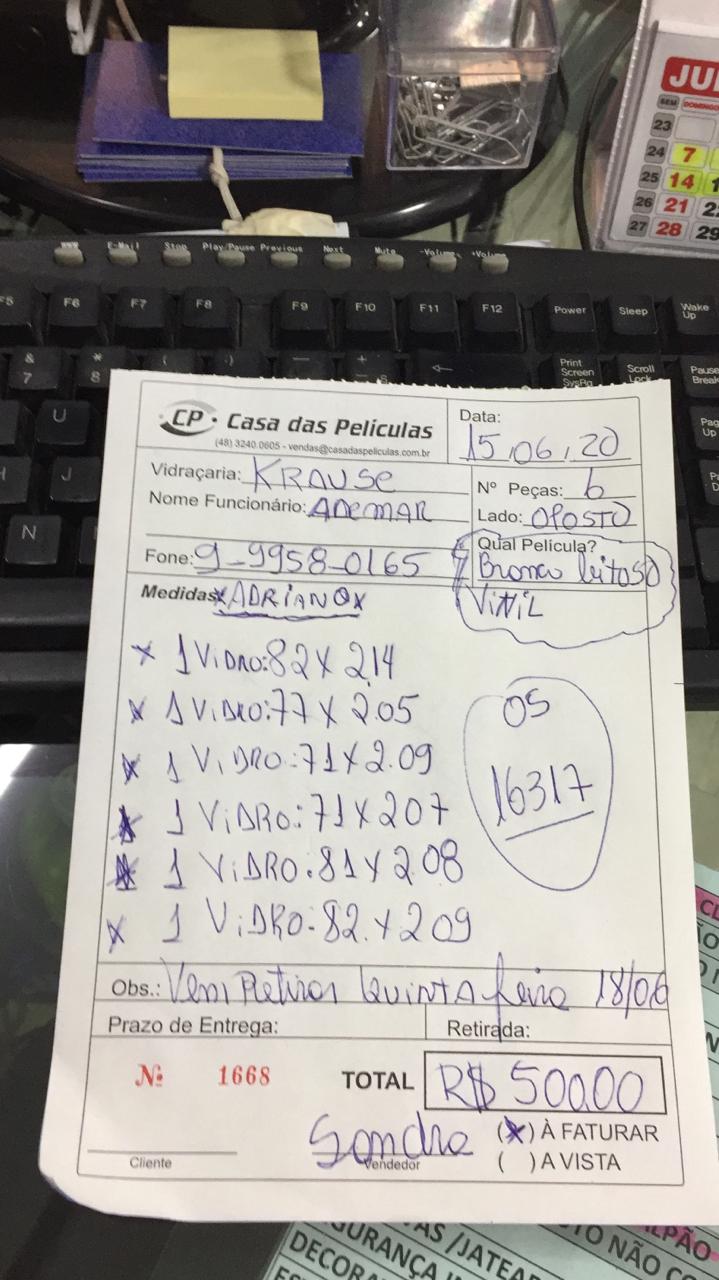 JU
SEM DOMINGO
23
24 7
25 14 1
26 21 2
27 28 29
WWW E-Mail Stop Play/Pause Previous Next Mute -Volume +Volume
F5 F6 F7 F8 F9 F10 F11 F12 Power Sleep Wake Up
& 7 * 8 ( ) — + Print Screen SysRq Scroll Lock Pause Break
U
J
N
CP Casa das Películas
(48) 3240.0605 - vendas@casadaspeliculas.com.br
Data:
15,06,20
Vidraçaria: KRAUSE
Nº Peças: 6
Nome Funcionário: ADEMAR
Lado: OPOSTO
Fone: 9-9958-0165
Qual Película?
Branco leitoso
ViNiL
Medidas: *ADRiANO x
x 1 ViDRO: 82 X 2.14
x 1 ViDRO: 77 X 2.05
x 1 ViDRO: 71 X 2.09
x 1 ViDRO: 71 X 207
x 1 ViDRO: 81 X 2.08
x 1 ViDRO: 82. X 209
OS
16317
Obs.: Vem Retirar QUiNTA feira 18/06
Prazo de Entrega:
Retirada:
Nº 1668
TOTAL R$ 500,00
Sandra
(x) À FATURAR
Cliente
Vendedor
( ) A VISTA
AS /JATEA
GURANÇA
DECORA
TO NÃO CO
LPÃO